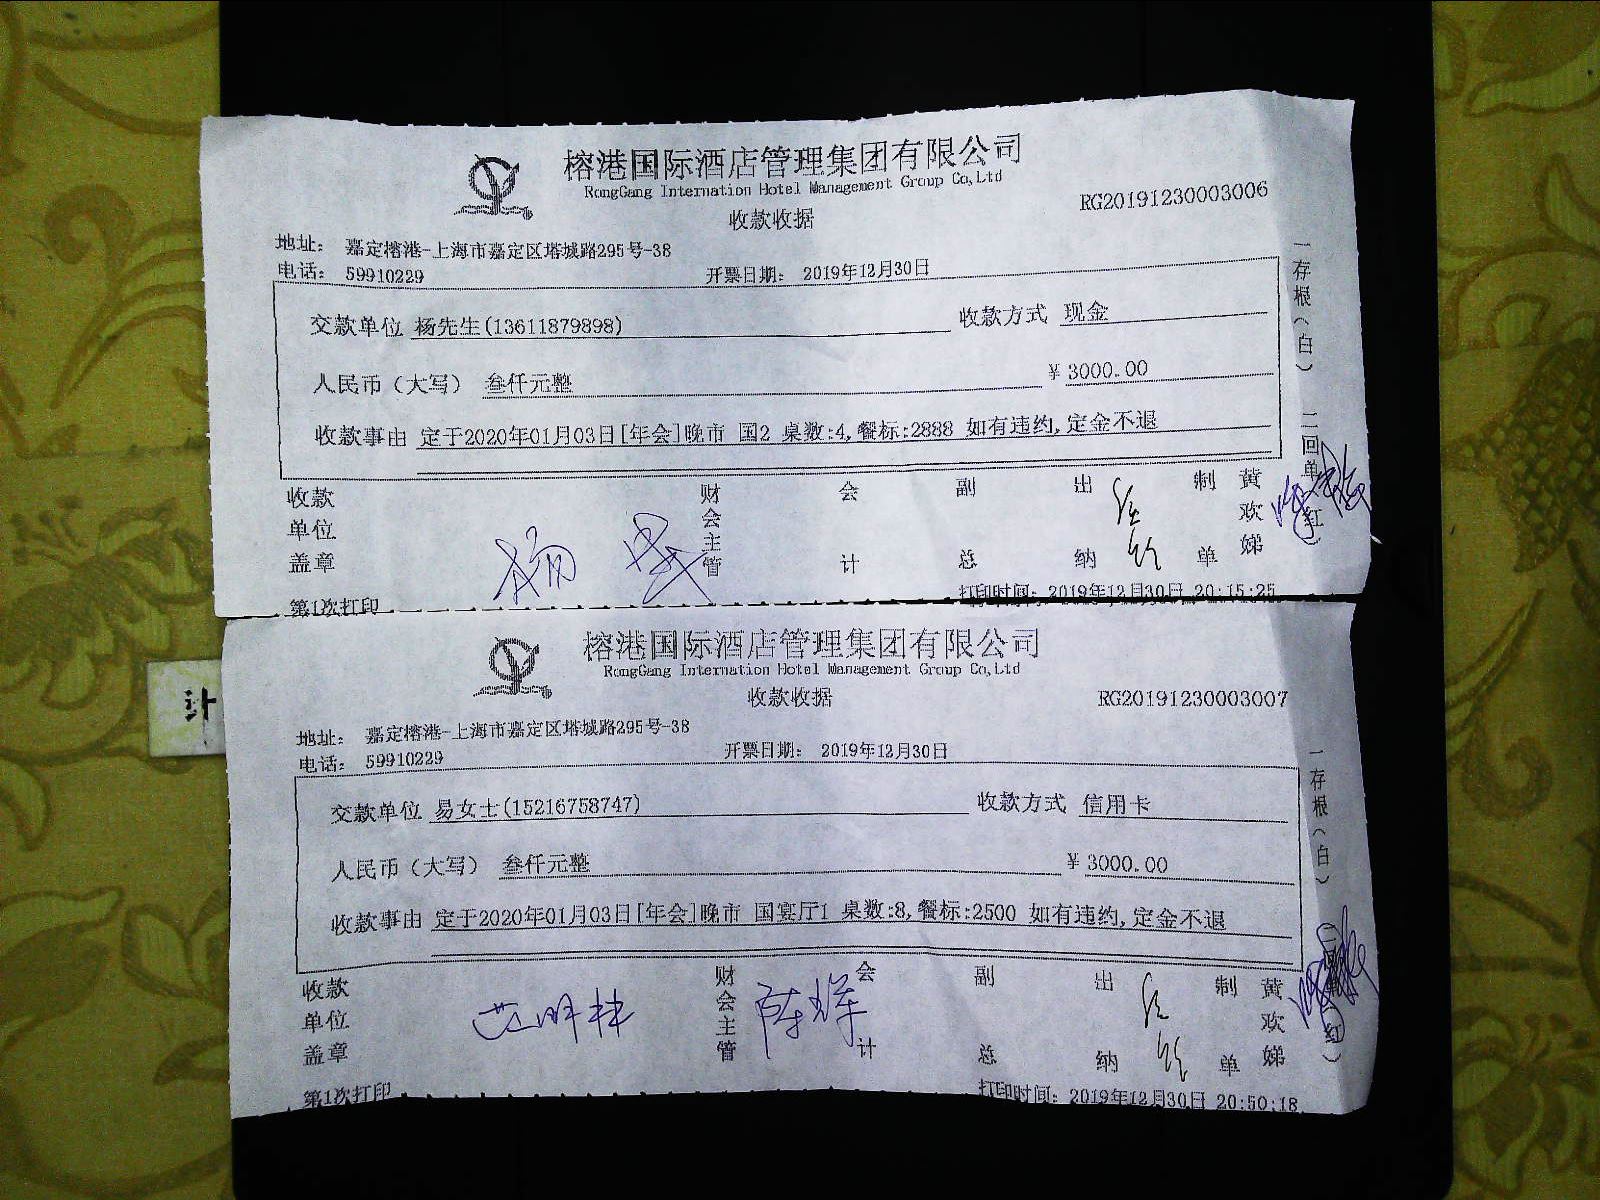 榕港国际酒店管理集团有限公司
RongGang Internation Hotel Management Group Co,Ltd
收款收据
RG20191230003006
地址： 嘉定榕港-上海市嘉定区塔城路295号-38
电话： 59910229 开票日期： 2019年12月30日
交款单位 杨先生(13611879898) 收款方式 现金
人民币（大写） 叁仟元整 ¥ 3000.00
收款事由 定于2020年01月03日[年会]晚市 国2 桌数:4,餐标:2888 如有违约,定金不退
收款单位盖章 财会主管 会计 副总 出纳 制单 黄欢娣
一存根（白） 二回单（红）
第1次打印 打印时间：2019年12月30日 20:15:25
榕港国际酒店管理集团有限公司
RongGang Internation Hotel Management Group Co,Ltd
收款收据
RG20191230003007
地址： 嘉定榕港-上海市嘉定区塔城路295号-38
电话： 59910229 开票日期： 2019年12月30日
交款单位 易女士(15216758747) 收款方式 信用卡
人民币（大写） 叁仟元整 ¥ 3000.00
收款事由 定于2020年01月03日[年会]晚市 国宴厅1 桌数:8,餐标:2500 如有违约,定金不退
收款单位盖章 财会主管 会计 副总 出纳 制单 黄欢娣
一存根（白） 红）
第1次打印 打印时间：2019年12月30日 20:50:18
计